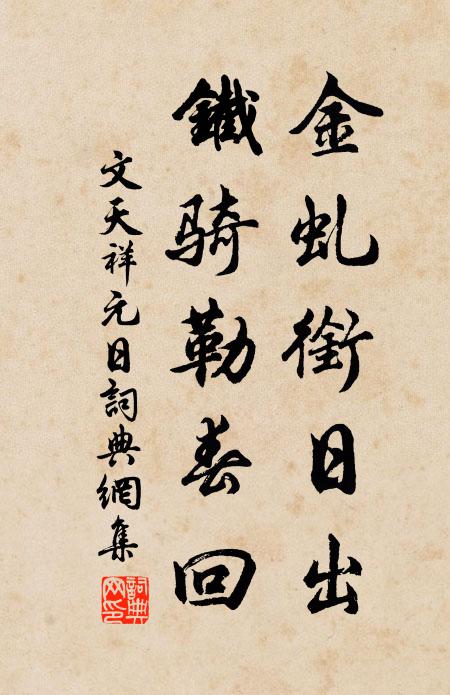 金虬銜日出
鐵骑勒春回
文天祥元日詞典網集
詞典网印